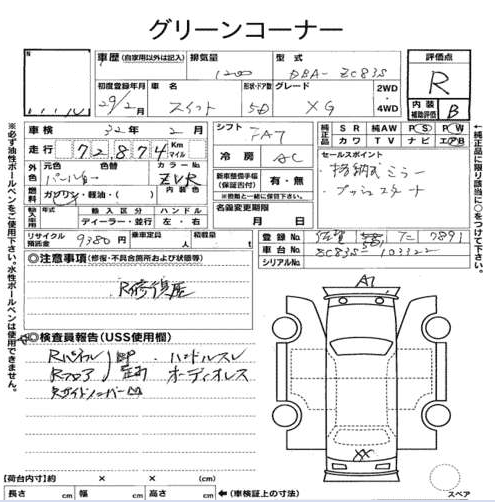 グリーンコーナー
車歴 (自家用以外は記入) 排気量 型式 評価点
1200 DBA- ZC83S R
初度登録年月 車名 形状・ドア数 グレード 2WD
29/2月 スイフト 5D XG 4WD
内装補助評価 B
車検 32年 2月 シフト FA7
純正品 SR 純AW PS PW
カワ TV ナビ エアB
走行 72,874 Km マイル 冷房 AC
セールスポイント
格納式ミラー
プッシュスタート
外色 元色 色替 カラーNo.
パール ZVR
新車整備手帳(保証書付) 有・無
※抹消と一緒に保管して下さい。
燃料 ガソリン・軽油・( ) 内装色
輸入車 輸入区分 ハンドル 名義変更期限
ディーラー・並行 左・右 月 日
リサイクル預託金 9380円 乗車定員 人 積載量
登録No. 佐賀 581 た 7891
車台No. ZC83S- 103122
シリアルNo.
◎注意事項 (修復・不具合箇所および状態等)
R修復歴
A1
◎検査員報告 (USS使用欄)
Rパネル ハンドルスレ
Rフロア オーディオレス
XX
【荷台内寸】約 × × (cm)
長さ cm 幅 cm 高さ cm ← (車検証上の寸法)
スペア
※必ず油性ボールペンをご使用下さい。水性ボールペンは使用できません。
↑純正品に限り該当に○をつけて下さい。